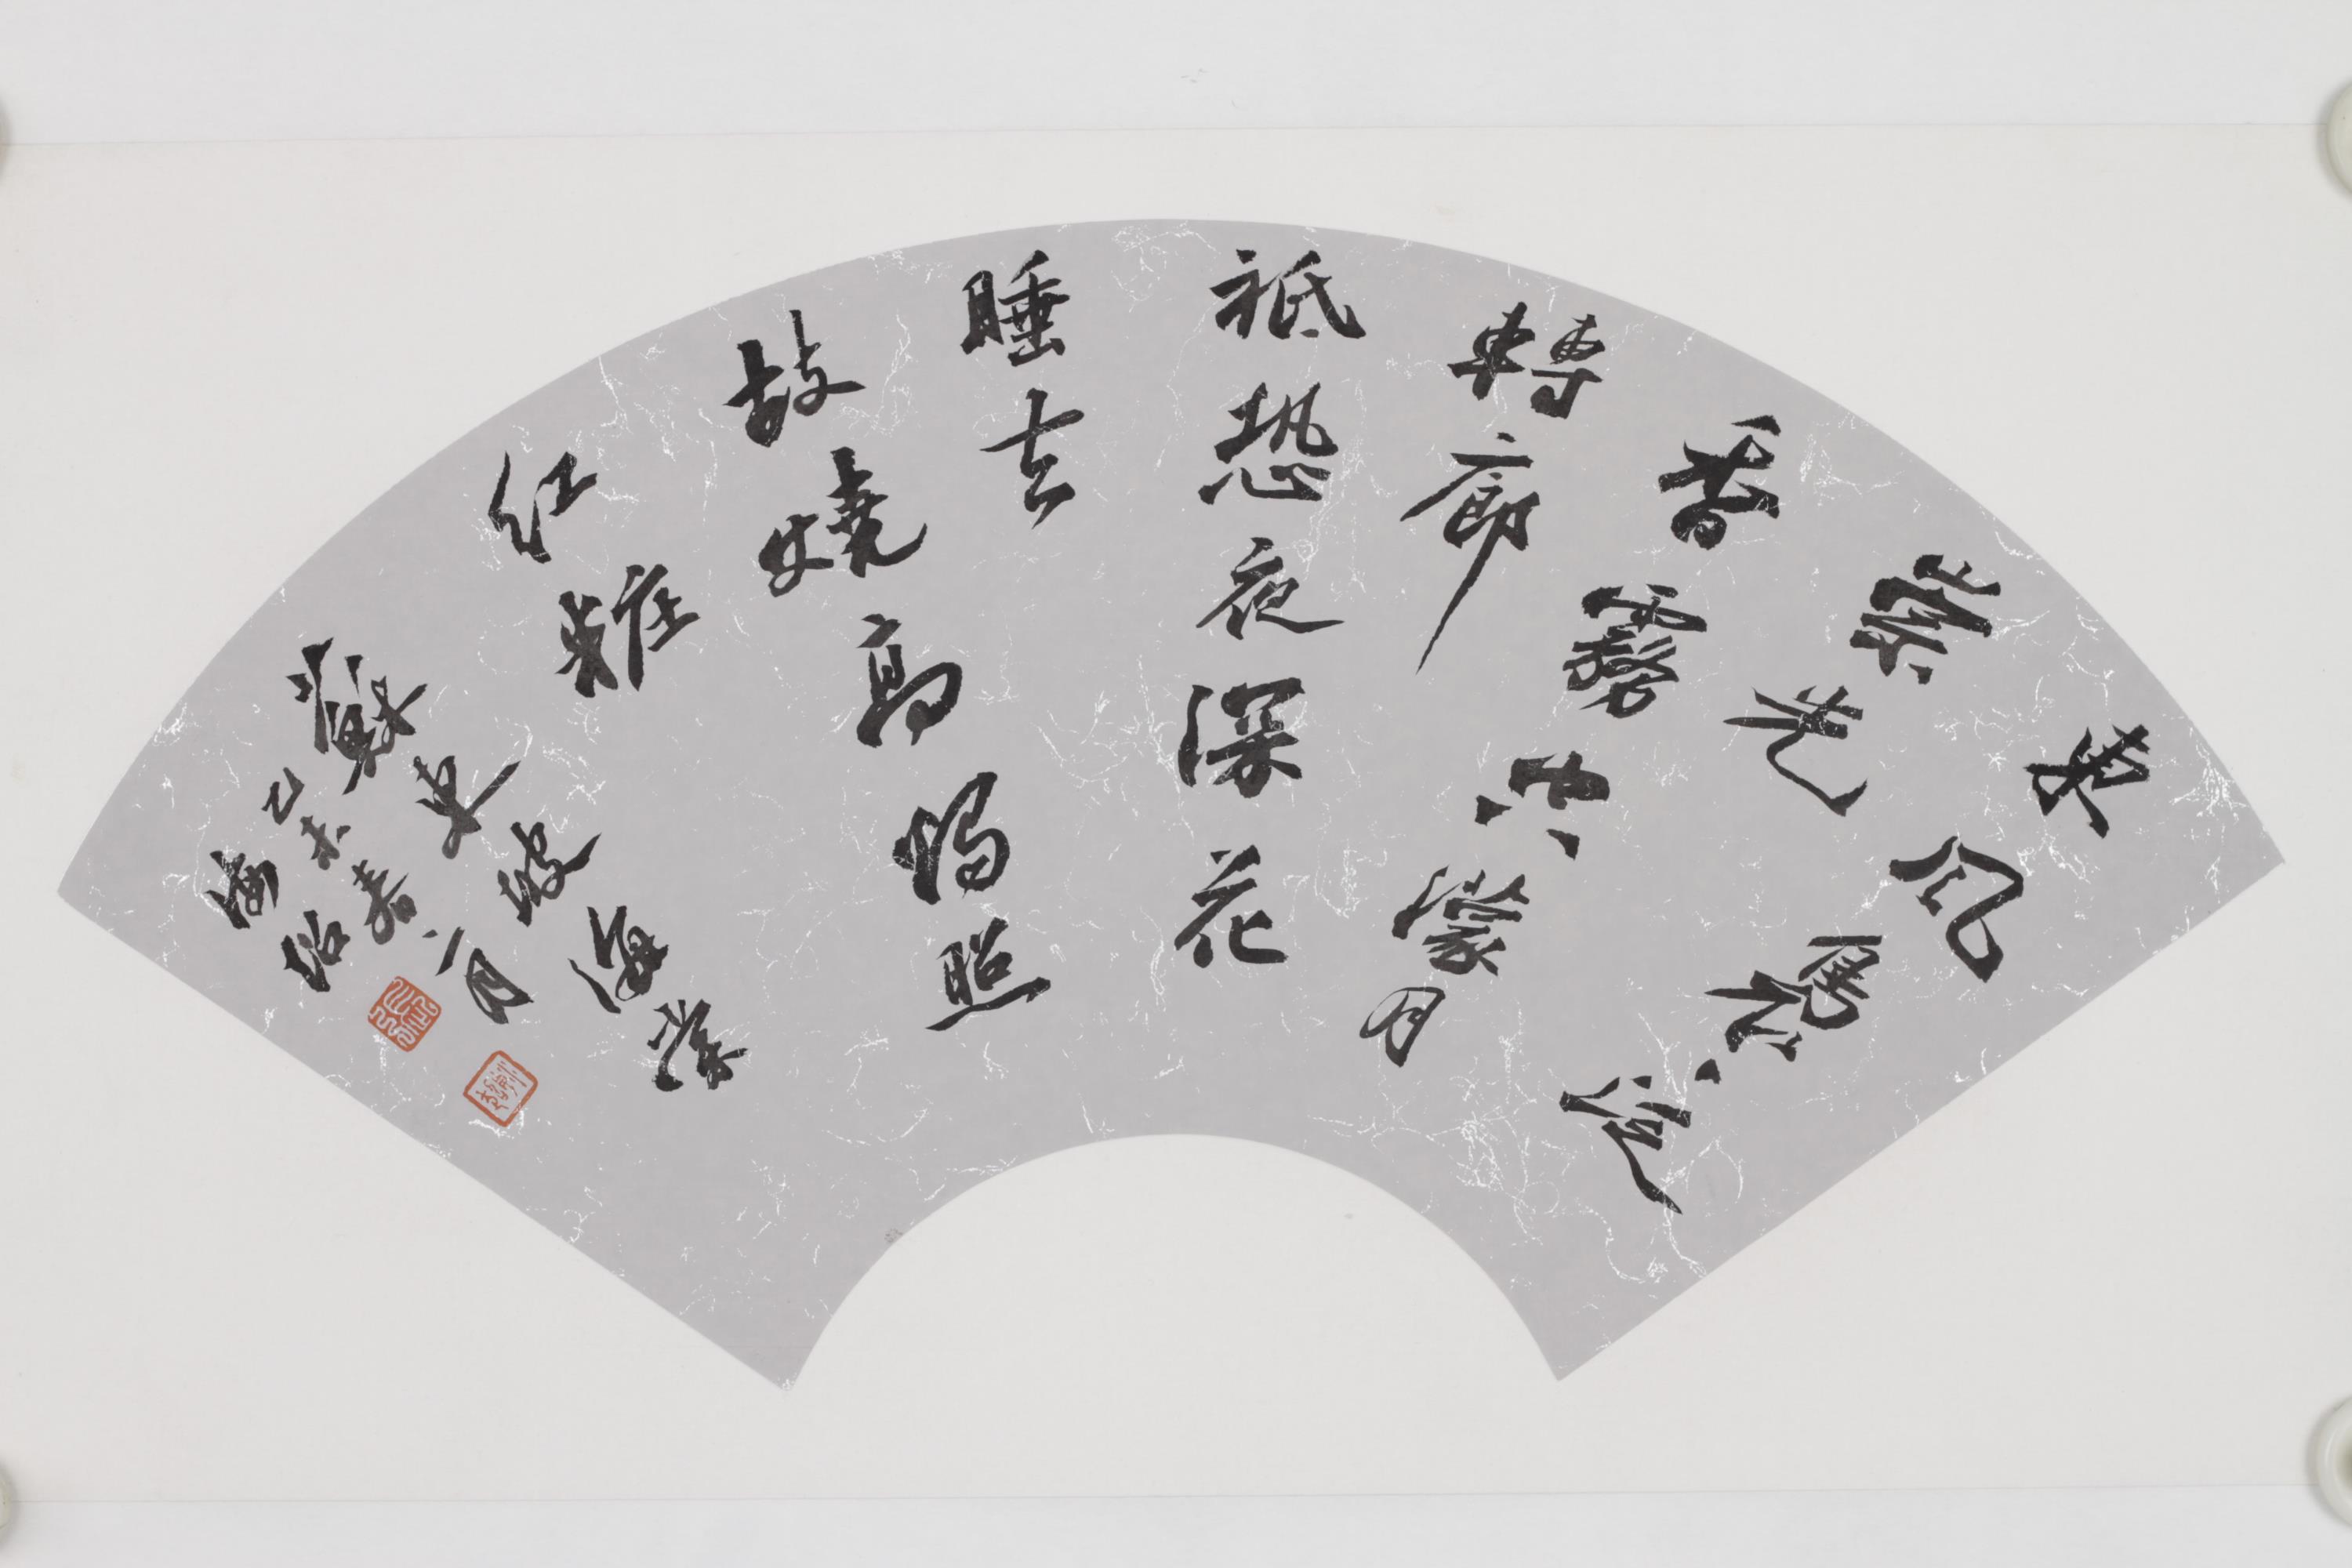 東風裊〻泛
崇光
香霧空濛月
轉廊
祇恐夜深花
睡去
故燒高燭照
紅粧
蘇東坡海棠
未春二月